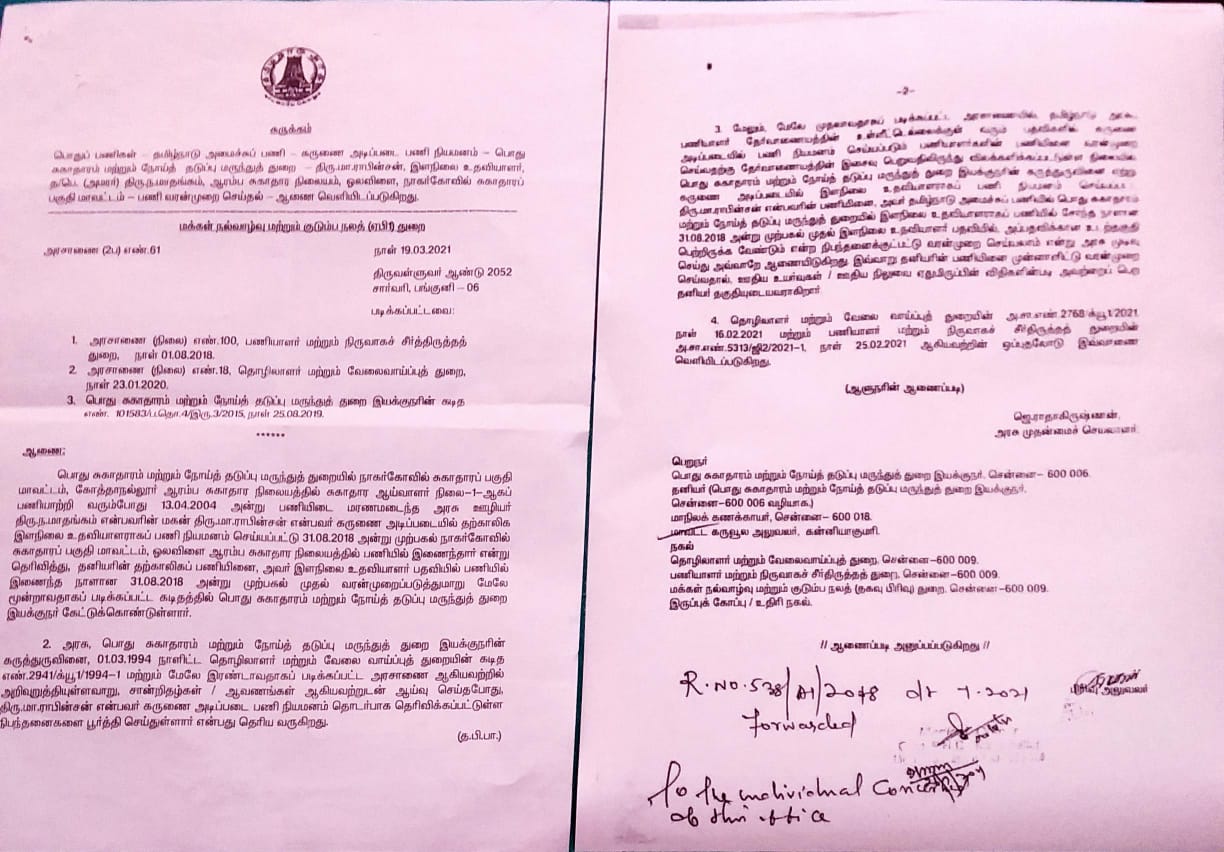 சுருக்கம்
பொதுப் பணிகள் – தமிழ்நாடு அமைச்சுப் பணி – கருணை அடிப்படை பணி நியமனம் – பொது
சுகாதாரம் மற்றும் நோய்த் தடுப்பு மருந்துத் துறை – திரு.மா.ராபின்சன், இளநிலை உதவியாளர்,
த/பெ. (அமரர்) திரு.ந.மாதங்கம், ஆரம்ப சுகாதார நிலையம், ஒலவிளை, நாகர்கோவில் சுகாதாரப்
பகுதி மாவட்டம் – பணி வரன்முறை செய்தல் – ஆணை வெளியிடப்படுகிறது.
மக்கள் நல்வாழ்வு மற்றும் குடும்ப நலத் (ஏபி1) துறை
அரசாணை (2ப) எண்.61
நாள் 19.03.2021
திருவள்ளுவர் ஆண்டு 2052
சார்வரி, பங்குனி – 06
படிக்கப்பட்டவை:
1. அரசாணை (நிலை) எண்.100, பணியாளர் மற்றும் நிருவாகச் சீர்த்திருத்தத்
துறை, நாள் 01.08.2018.
2. அரசாணை (நிலை) எண்.18, தொழிலாளர் மற்றும் வேலைவாய்ப்புத் துறை,
நாள் 23.01.2020.
3. பொது சுகாதாரம் மற்றும் நோய்த் தடுப்பு மருந்துத் துறை இயக்குநரின் கடித
எண். 101583/ப.தொ.4/இரு.3/2015, நாள் 25.08.2019.
******
ஆணை:
பொது சுகாதாரம் மற்றும் நோய்த் தடுப்பு மருந்துத் துறையில் நாகர்கோவில் சுகாதாரப் பகுதி
மாவட்டம், கோத்தாநல்லூர் ஆரம்ப சுகாதார நிலையத்தில் சுகாதார ஆய்வாளர் நிலை–1–ஆகப்
பணியாற்றி வரும்போது 13.04.2004 அன்று பணியிடை மரணமடைந்த அரசு ஊழியர்
திரு.ந.மாதங்கம் என்பவரின் மகன் திரு.மா.ராபின்சன் என்பவர் கருணை அடிப்படையில் தற்காலிக
இளநிலை உதவியாளராகப் பணி நியமனம் செய்யப்பட்டு 31.08.2018 அன்று முற்பகல் நாகர்கோவில்
சுகாதாரப் பகுதி மாவட்டம், ஒலவிளை ஆரம்ப சுகாதார நிலையத்தில் பணியில் இணைந்தார் என்று
தெரிவித்து, தனியரின் தற்காலிகப் பணியினை, அவர் இளநிலை உதவியாளர் பதவியில் பணியில்
இணைந்த நாளான 31.08.2018 அன்று முற்பகல் முதல் வரன்முறைப்படுத்துமாறு மேலே
மூன்றாவதாகப் படிக்கப்பட்ட கடிதத்தில் பொது சுகாதாரம் மற்றும் நோய்த் தடுப்பு மருந்துத் துறை
இயக்குநர் கேட்டுக்கொண்டுள்ளார்.
2. அரசு, பொது சுகாதாரம் மற்றும் நோய்த் தடுப்பு மருந்துத் துறை இயக்குநரின்
கருத்துருவினை, 01.03.1994 நாளிட்ட தொழிலாளர் மற்றும் வேலை வாய்ப்புத் துறையின் கடித
எண்.2941/க்யூ1/1994–1 மற்றும் மேலே இரண்டாவதாகப் படிக்கப்பட்ட அரசாணை ஆகியவற்றில்
அறிவுறுத்தியுள்ளவாறு, சான்றிதழ்கள் / ஆவணங்கள் ஆகியவற்றுடன் ஆய்வு செய்தபோது,
திரு.மா.ராபின்சன் என்பவர் கருணை அடிப்படை பணி நியமனம் தொடர்பாக தெரிவிக்கப்பட்டுள்ள
நிபந்தனைகளை பூர்த்தி செய்துள்ளார் என்பது தெரிய வருகிறது.
(த.பி.பா.)
-2-
3. மேலும், மேலே முதலாவதாகப் படிக்கப்பட்ட அரசாணையில், தமிழ்நாடு அரசு
பணியாளர் தேர்வாணையத்தின் உள்ளீட்டெல்லைக்குள் வரும் பதவிகளில் கருணை
அடிப்படையில் பணி நியமனம் செய்யப்படும் பணியாளர்களின் பணியினை வரன்முறை
செய்வதற்கு தேர்வாணையத்தின் இசைவு பெறுவதிலிருந்து விலக்களிக்கப்பட்டுள்ள நிலையில்
பொது சுகாதாரம் மற்றும் நோய்த் தடுப்பு மருந்துத் துறை இயக்குநரின் கருத்துருவினை ஏற்று
கருணை அடிப்படையில் இளநிலை உதவியாளராகப் பணி நியமனம் செய்யப்பட்ட
திரு.மா.ராபின்சன் என்பவரின் பணியினை, அவர் தமிழ்நாடு அமைச்சுப் பணியில் பொது சுகாதாரம்
மற்றும் நோய்த் தடுப்பு மருந்துத் துறையில் இளநிலை உதவியாளராகப் பணியில் சேர்ந்த நாளான
31.08.2018 அன்று முற்பகல் முதல் இளநிலை உதவியாளர் பதவியில், அப்பதவிக்கான உடற்தகுதி
பெற்றிருக்க வேண்டும் என்ற நிபந்தனைக்குட்பட்டு வரன்முறை செய்யலாம் என்று அரசு முடிவு
செய்து அவ்வாறே ஆணையிடுகிறது. இவ்வாறு தனியரின் பணியினை முன்னளிட்டு வரன்முறை
செய்வதால், ஊதிய உயர்வுகள் / ஊதிய நிலுவை ஏதுமிருப்பின் விதிகளின்படி அவற்றைப் பெற
தனியர் தகுதியுடையவராகிறார்.
4. தொழிலாளர் மற்றும் வேலை வாய்ப்புத் துறையின் அ.சா.எண்.2768/க்யூ1/2021,
நாள் 16.02.2021 மற்றும் பணியாளர் மற்றும் நிருவாகச் சீர்திருத்தத் துறையின்
அ.சா.எண்.5313/ஜி2/2021–1, நாள் 25.02.2021 ஆகியவற்றின் ஒப்புதலோடு இவ்வாணை
வெளியிடப்படுகிறது.
(ஆளுநரின் ஆணைப்படி)
ஜெ.ராதாகிருஷ்ணன்,
அரசு முதன்மைச் செயலாளர்.
பெறுநர்
பொது சுகாதாரம் மற்றும் நோய்த் தடுப்பு மருந்துத் துறை இயக்குநர், சென்னை– 600 006.
தனியர் (பொது சுகாதாரம் மற்றும் நோய்த் தடுப்பு மருந்துத் துறை இயக்குநர்,
சென்னை–600 006 வழியாக.)
மாநிலக் கணக்காயர், சென்னை– 600 018.
மாவட்ட கருவூல அலுவலர், கன்னியாகுமரி.
நகல்
தொழிலாளர் மற்றும் வேலைவாய்ப்புத் துறை, சென்னை–600 009.
பணியாளர் மற்றும் நிருவாகச் சீர்திருத்தத் துறை, சென்னை–600 009.
மக்கள் நல்வாழ்வு மற்றும் குடும்ப நலத் (தகவு பிரிவு) துறை, சென்னை–600 009.
இருப்புக் கோப்பு / உதிரி நகல்.
// ஆணைப்படி அனுப்பப்படுகிறது //
பிரிவு அலுவலர்
R.No.538/A1/2018 dt .2021
Forwarded
To the individual Concern
of this office